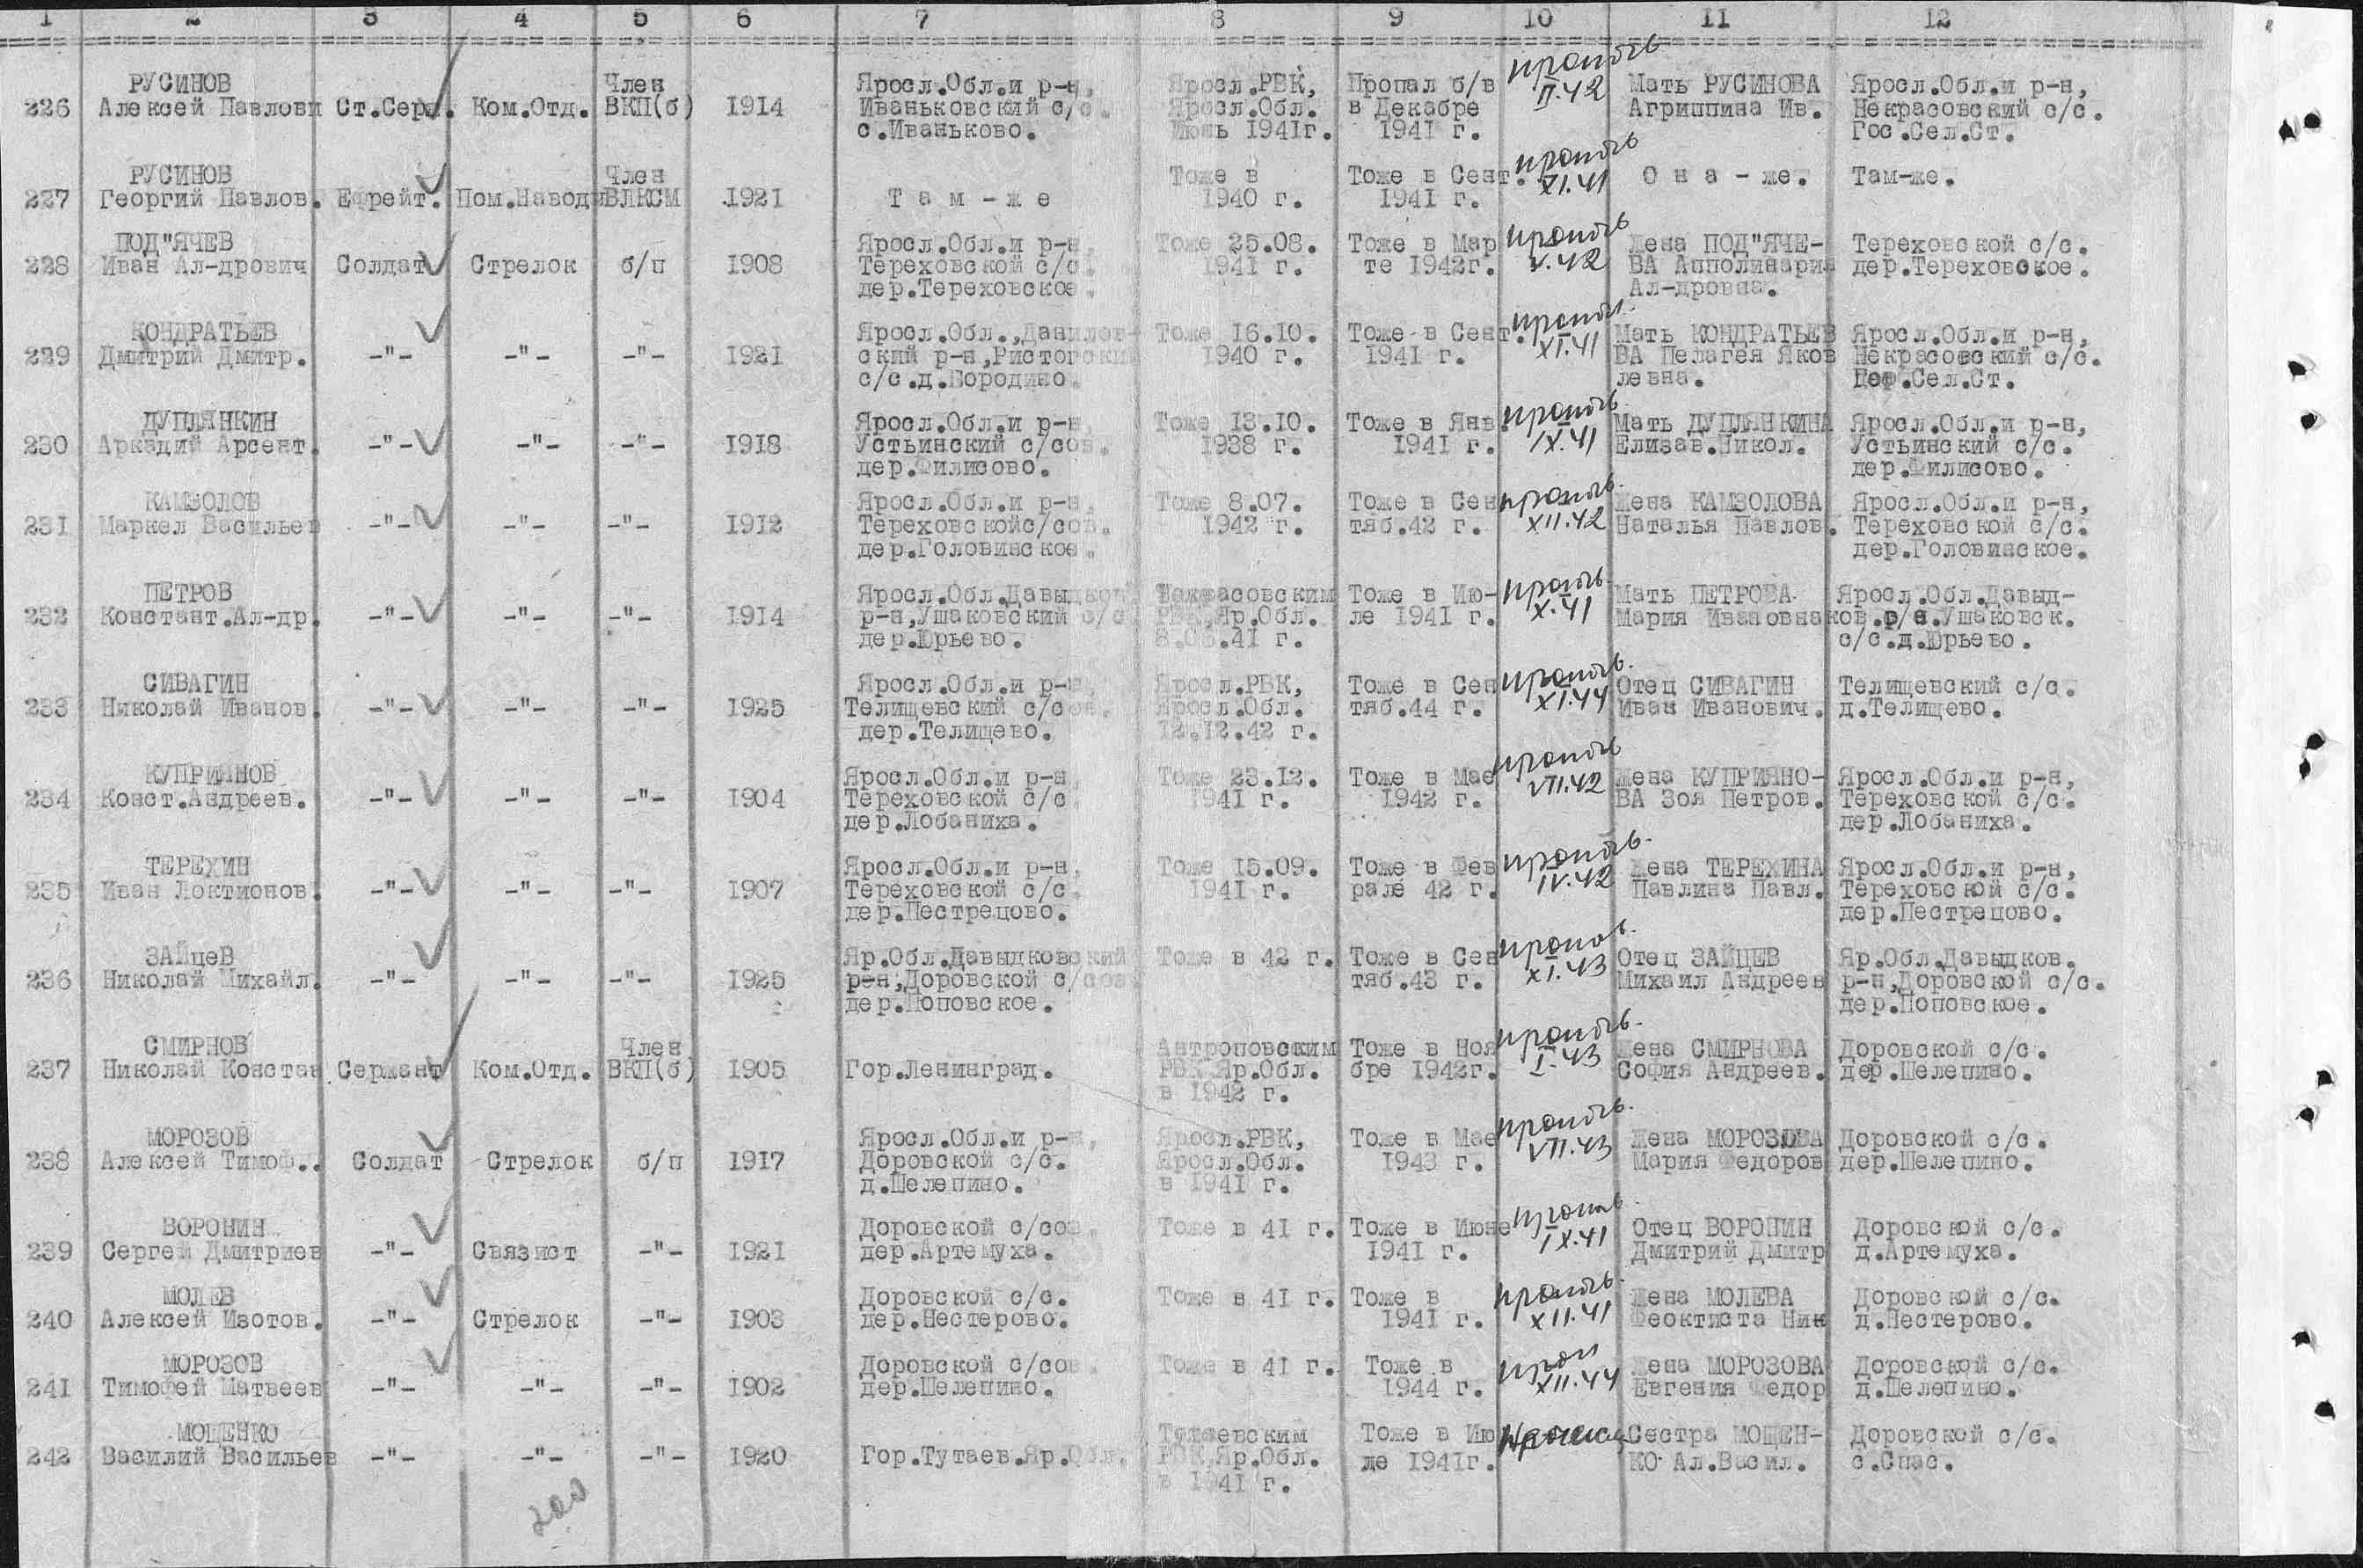 1 2 3 4 5 6 7 8 9 10 11 12
РУСИНОВ Член Яросл.Обл.и р-н, Яросл.РВК, Пропал б/в пропбв Мать РУСИНОВА Яросл.Обл.и р-н,
226 Алексей Павлови Ст.Серж. Ком.Отд. ВКП(б) 1914 Иваньковский с/с. Яросл.Обл. в Декабре II.42 Агриппина Ив. Некрасовский с/с.
с.Иваньково. Июнь 1941г. 1941 г. Гос.Сел.Ст.
РУСИНОВ Член Тоже в Тоже в Сент. пропбв О н а - же. Там-же.
227 Георгий Павлов. Ефрейт. Пом.Наводч ВЛКСМ 1921 Т а м - ж е 1940 г. 1941 г. XI.41
ПОД"ЯЧЕВ Яросл.Обл.и р-н, Тоже 25.08. Тоже в Мар пропбв Жена ПОД"ЯЧЕ- Тереховской с/с.
228 Иван Ал-дрович Солдат Стрелок б/п 1908 Тереховской с/с. 1941 г. те 1942г. V.42 ВА Апполинария дер.Тереховское.
дер.Тереховское. Ал-дровна.
КОНДРАТЬЕВ Яросл.Обл.,Данилов- Тоже 16.10. Тоже в Сент. Мать КОНДРАТЬЕВ Яросл.Обл.и р-н,
229 Дмитрий Дмитр. -"- -"- -"- 1921 ский р-н,Ристогский 1940 г. 1941 г. XI.41 ВА Пелагея Яков Некрасовский с/с.
с/с.д.Бородино. левна. Гос.Сел.Ст.
ДУПЛЯНКИН Яросл.Обл.и р-н, Тоже 13.10. Тоже в Янв. пропбв Мать ДУПЛЯНКИНА Яросл.Обл.и р-н,
230 Аркадий Арсент. -"- -"- -"- 1918 Устьинский с/сов. 1938 г. 1941 г. IX.41 Елизав.Никол. Устьинский с/с.
дер.Филисово. дер.Филисово.
КАМЗОЛОВ Яросл.Обл.и р-н, Тоже 8.07. Тоже в Сен пропбв. Жена КАМЗОЛОВА Яросл.Обл.и р-н,
231 Маркел Васильев -"- -"- -"- 1912 Тереховскойс/сов. 1942 г. тяб.42 г. XII.42 Наталья Павлов. Тереховской с/с.
дер.Головинское. дер.Головинское.
ПЕТРОВ Яросл.Обл.Давыдков Некрасовским Тоже в Ию- пропбв. Мать ПЕТРОВА Яросл.Обл.Давыд-
232 Констант.Ал-др. -"- -"- -"- 1914 р-н,Ушаковский с/с РВК,Яр.Обл. ле 1941 г. X.41 Мария Ивановна ков.р/н.Ушаковск.
дер.Юрьево. .41 г. с/с.д.Юрьево.
СИВАГИН Яросл.Обл.и р-н, Яросл.РВК, Тоже в Сен пропбв. Отец СИВАГИН Телищевский с/с.
233 Николай Иванов. -"- -"- -"- 1925 Телищевский с/сов. Яросл.Обл. тяб.44 г. XI.44 Иван Иванович. д.Телищево.
дер.Телищево. 12.12.42 г.
КУПРИЯНОВ Яросл.Обл.и р-н, Тоже 23.12. Тоже в Мае пропбв Жена КУПРИЯНО- Яросл.Обл.и р-н,
234 Конст.Андреев. -"- -"- -"- 1904 Тереховской с/с 1941 г. 1942 г. VII.42 ВА Зоя Петров. Тереховской с/с.
дер.Лобаниха. дер.Лобаниха.
ТЕРЕХИН Яросл.Обл.и р-н, Тоже 15.09. Тоже в Фев пропбв. Жена ТЕРЕХИНА Яросл.Обл.и р-н,
235 Иван Локтионов. -"- -"- -"- 1907 Тереховской с/с. 1941 г. рале 42 г. IV.42 Павлина Павл. Тереховской с/с.
дер.Пестрецово. дер.Пестрецово.
ЗАЙцеВ Яр.Обл.Давыдковский Тоже в 42 г. Тоже в Сен пропбв. Отец ЗАЙЦЕВ Яр.Обл.Давыдков.
236 Николай Михайл. -"- -"- -"- 1925 р-н,Доровской с/сов тяб.43 г. XI.43 Михаил Андреев р-н,Доровской с/с.
дер.Поповское. дер.Поповское.
СМИРНОВ Член Антроповским Тоже в Ноя пропбв. Жена СМИРНОВА Доровской с/с.
237 Николай Констан Сержант Ком.Отд. ВКП(б) 1905 Гор.Ленинград. РВК Яр.Обл. бре 1942г. I.43 София Андреев. дер.Шелепино.
в 1942 г.
МОРОЗОВ Яросл.Обл.и р-н, Яросл.РВК, Тоже в Мае пропбв. Жена МОРОЗОВА Доровской с/с.
238 Алексей Тимоф.. Солдат Стрелок б/п 1917 Доровской с/с. Яросл.Обл. 1943 г. VII.43 Мария Федоров дер.Шелепино.
д.Шелепино. в 1941 г.
ВОРОНИН Доровской с/сов. Тоже в 41 г. Тоже в Июне пропбв. Отец ВОРОНИН Доровской с/с.
239 Сергей Дмитриев -"- Связист -"- 1921 дер.Артемуха. 1941 г. IX.41 Дмитрий Дмитр д.Артемуха.
МОЛЕВ Доровской с/с. Тоже в 41 г. Тоже в пропбв. Жена МОЛЕВА Доровской с/с.
240 Алексей Изотов. -"- Стрелок -"- 1903 дер.Нестерово. 1941 г. XII.41 Феоктиста Ник д.Нестерово.
МОРОЗОВ Доровской с/сов. Тоже в 41 г. Тоже в проп Жена МОРОЗОВА Доровской с/с.
241 Тимофей Матвеев -"- -"- -"- 1902 дер.Шелепино. 1944 г. XII.44 Евгения Федор д.Шелепино.
МОЩЕНКО Тутаевским Тоже в Ию Сестра МОЩЕН- Доровской с/с.
242 Василий Васильев -"- -"- -"- 1920 Гор.Тутаев.Яр.Обл. РВК,Яр.Обл. ле 1941г. КО Ал.Васил. с.Спас.
в 1941 г.
200